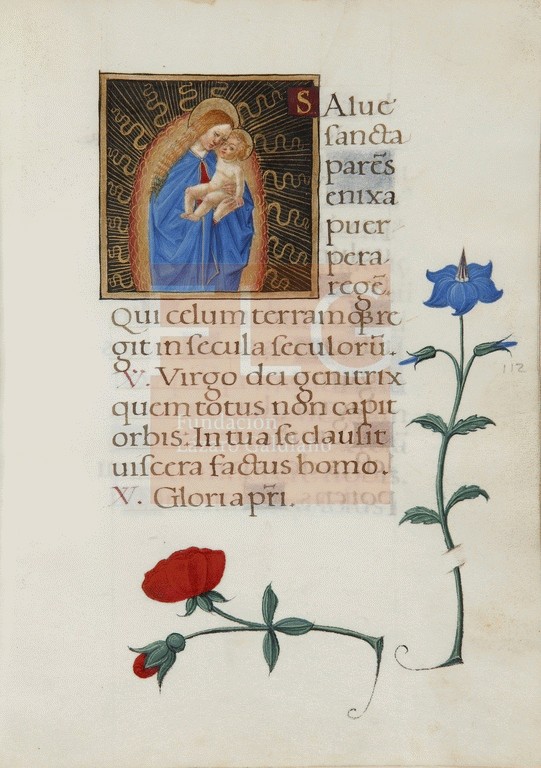 SAlue
sancta
parēs
enixa
puer
pera
regē.
Qui celum terramqꝫ re
git in secula seculorū.
V. Virgo dei genitrix
quem totus non capit
orbis: In tua se clausit
uiscera factus homo.
V. Gloria pr̄i.
112
FLG
Fundación
Lázaro Galdiano